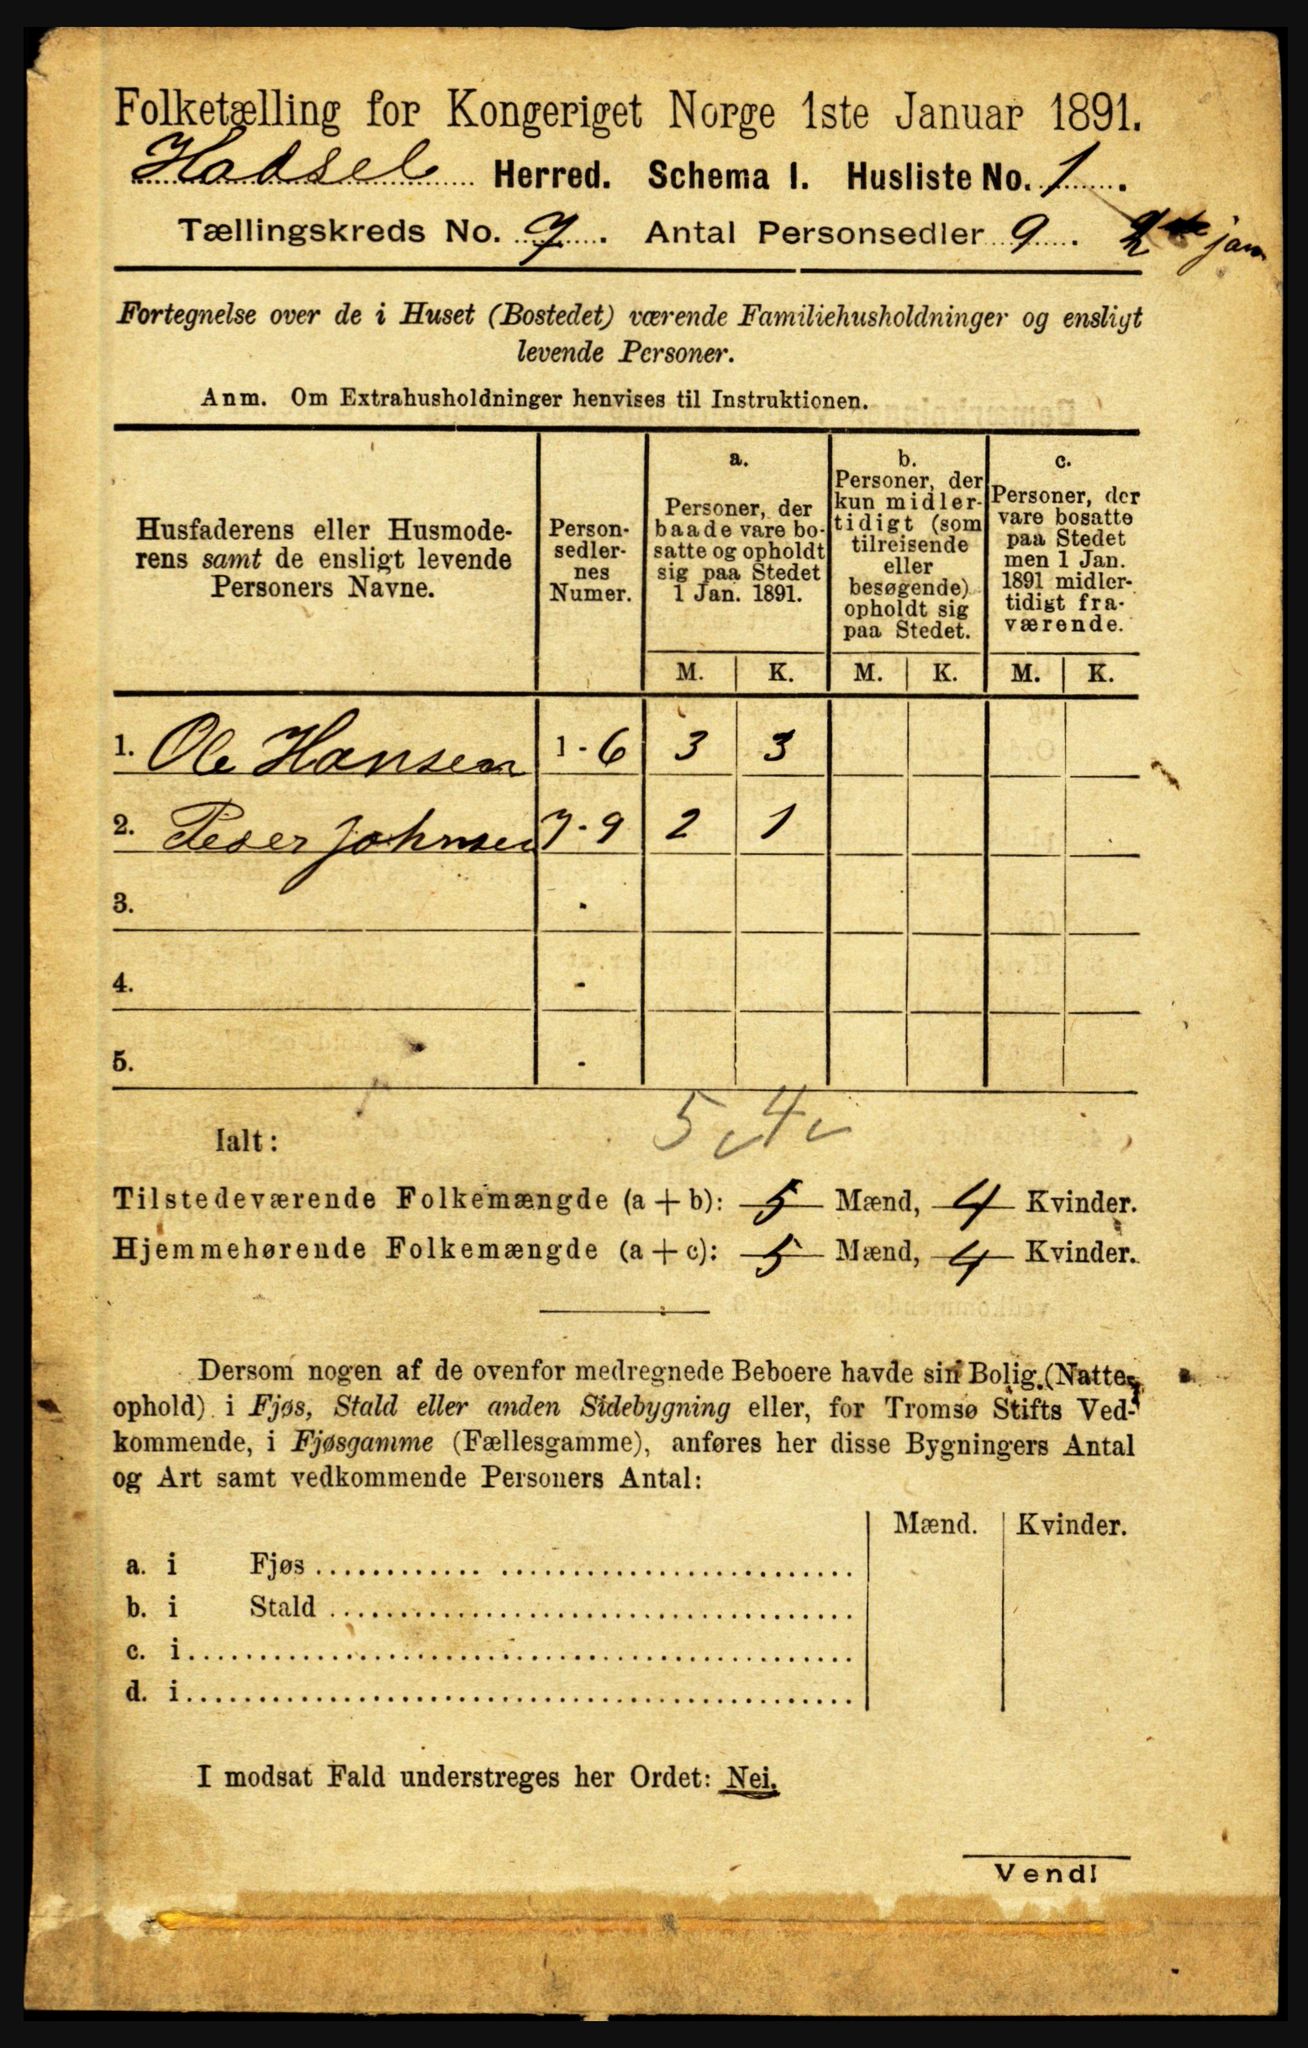 Folketælling for Kongeriget Norge 1ste Januar 1891.
Hadsel Herred. Schema I. Husliste No. 1.
Tællingskreds No. 7. Antal Personsedler 9. 2 jan
Fortegnelse over de i Huset (Bostedet) værende Familiehusholdninger og ensligt
levende Personer.
Anm. Om Extrahusholdninger henvises til Instruktionen.
Husfaderens eller Husmode-
rens samt de ensligt levende
Personers Navne.
Person-
sedler-
nes
Numer.
a.
Personer, der
baade vare bo-
satte og opholdt
sig paa Stedet
1 Jan. 1891.
b.
Personer, der
kun midler-
tidigt (som
tilreisende
eller
besøgende)
opholdt sig
paa Stedet.
c.
Personer, der
vare bosatte
paa Stedet
men 1 Jan.
1891 midler-
tidigt fra-
værende.
M. K. M. K. M. K.
1. Ole Hansen 1-6 3 3
2. Peder Johnsen 7-9 2 1
3. -
4. -
5. -
5 4
Ialt:
Tilstedeværende Folkemængde (a + b): 5 Mænd, 4 Kvinder.
Hjemmehørende Folkemængde (a + c): 5 Mænd, 4 Kvinder.
Dersom nogen af de ovenfor medregnede Beboere havde sin Bolig (Natte-
ophold) i Fjøs, Stald eller anden Sidebygning eller, for Tromsø Stifts Ved-
kommende, i Fjøsgamme (Fællesgamme), anføres her disse Bygningers Antal
og Art samt vedkommende Personers Antal:
Mænd. Kvinder.
a. i Fjøs
b. i Stald
c. i
d. i
I modsat Fald understreges her Ordet: Nei.
Vend!